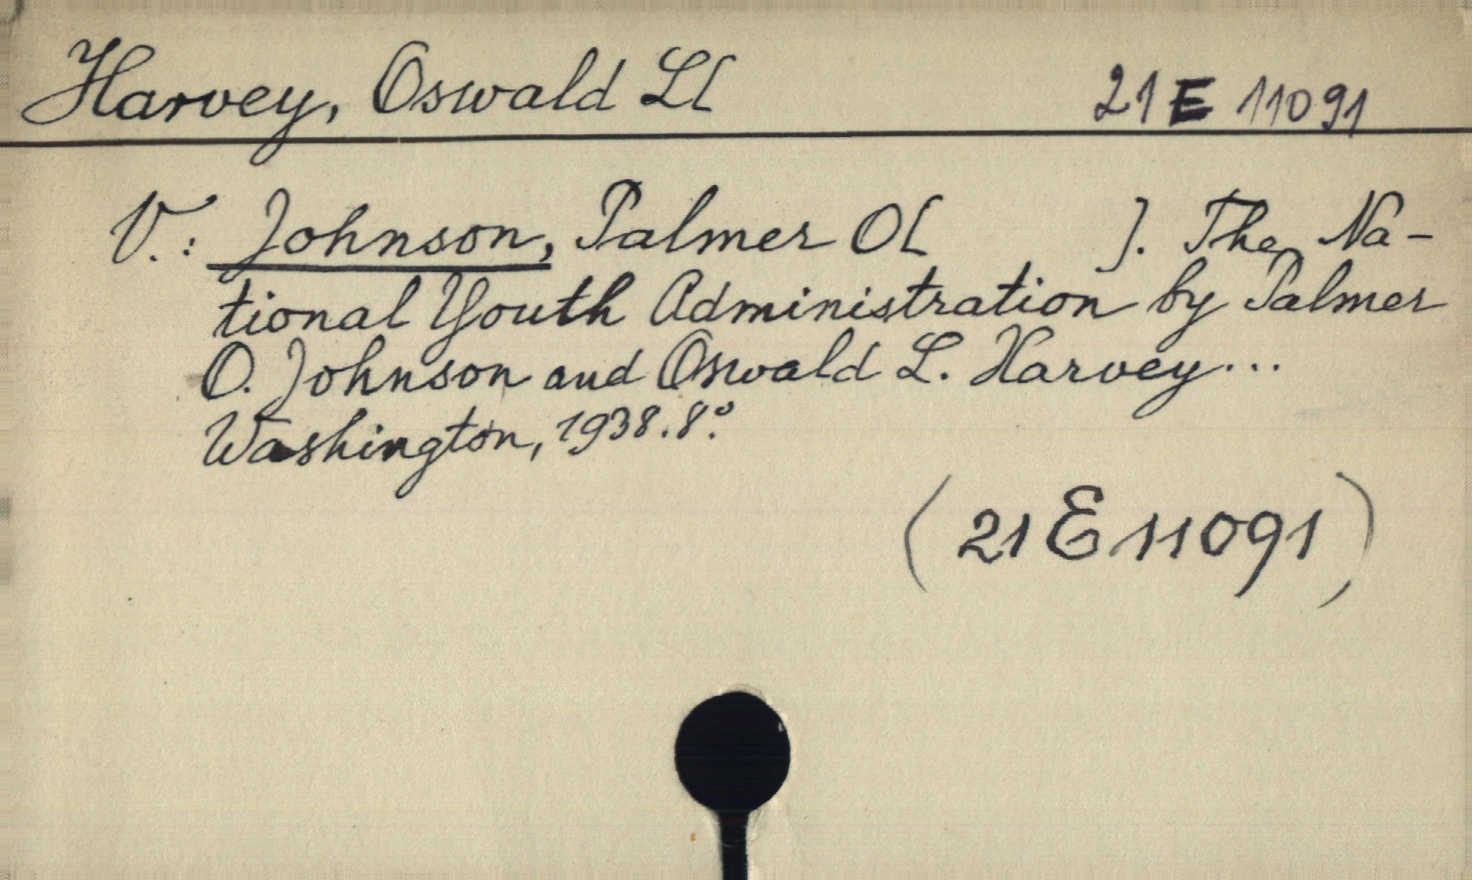 Harvey, Oswald L[ 21 E 11091
V.: Johnson, Palmer O[ ]. The Na-
tional Youth Administration by Palmer
O. Johnson and Oswald L. Harvey...
Washington, 1938. 8º.
(21 E 11091)